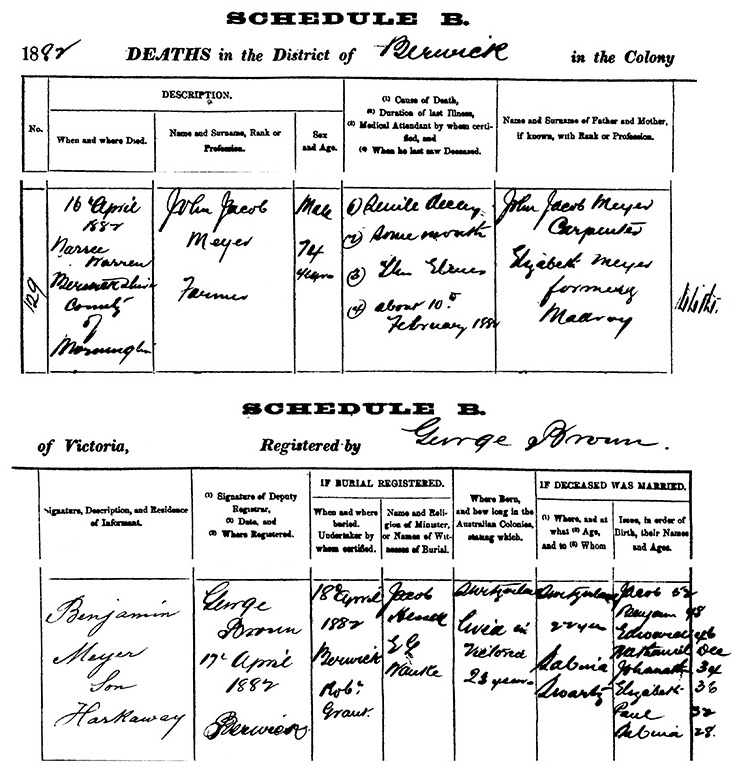 SCHEDULE B.
1882 DEATHS in the District of Berwick in the Colony
No.
DESCRIPTION.
When and where Died.
Name and Surname, Rank or
Profession.
Sex
and Age.
(1) Cause of Death,
(2) Duration of last Illness,
(3) Medical Attendant by whom certi-
fied, and
(4) When he last saw Deceased.
Name and Surname of Father and Mother,
if known, with Rank or Profession.
129
16th April
1882
Narree
Warren
Berwick Shire
County
of
Mornington
John Jacob
Meyer
Farmer
Male
74
years
(1) Senile decay
(2) Some month
(3)
(4) about 10th
February 1882
John Jacob Meyer
Carpenter
Elizabeth Meyer
formerly
SCHEDULE B.
of Victoria, Registered by George Brown.
Signature, Description, and Residence
of Informant.
(1) Signature of Deputy
Registrar,
(2) Date, and
(3) Where Registered.
IF BURIAL REGISTERED.
When and where
buried.
Undertaker by
whom certified.
Name and Reli-
gion of Minister,
or Names of Wit-
nesses of Burial.
Where Born,
and how long in the
Australian Colonies,
stating which.
IF DECEASED WAS MARRIED.
(1) Where, and at
what (2) Age,
and to (3) Whom
Issue, in order of
Birth, their Names
and Ages.
Benjamin
Meyer
Son
Harkaway
George
Brown
17th April
1882
Berwick
18th April
1882
Berwick
Robt.
Grant.
Jacob
Hessell
E G
Wanke
Switzerland
Lived in
Victoria
23 years
Switzerland
22 yrs
Sabina
Swartz
Jacob 52
Benjam 48
Edward 46
Nathaniel Dec
Johanath 34
Elizabeth 36
Paul 32
Sabina 28.